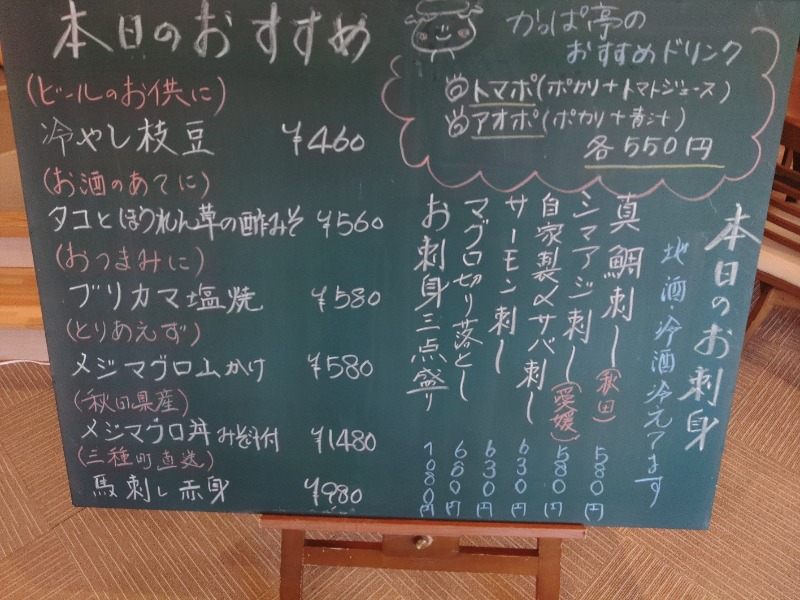 本日のおすすめ
(ビールのお供に)
冷やし枝豆 ¥460
(お酒のあてに)
タコとほうれん草の酢みそ ¥560
(おつまみに)
ブリカマ塩焼 ¥580
(とりあえず)
メジマグロ山かけ ¥580
(秋田県産)
メジマグロ丼みそ汁付 ¥1480
(三種町直送)
馬刺し赤身 ¥980
かっぱ亭の
おすすめドリンク
◎トマポ(ポカリ+トマトジュース)
◎アオポ(ポカリ+青汁)
各550円
本日のお刺身
地酒・冷酒冷えてます
真鯛刺し(秋田) 580円
シマアジ刺し(愛媛) 580円
自家製〆サバ刺し 630円
サーモン刺し 630円
マグロ切り落とし 680円
お刺身三点盛り 1080円